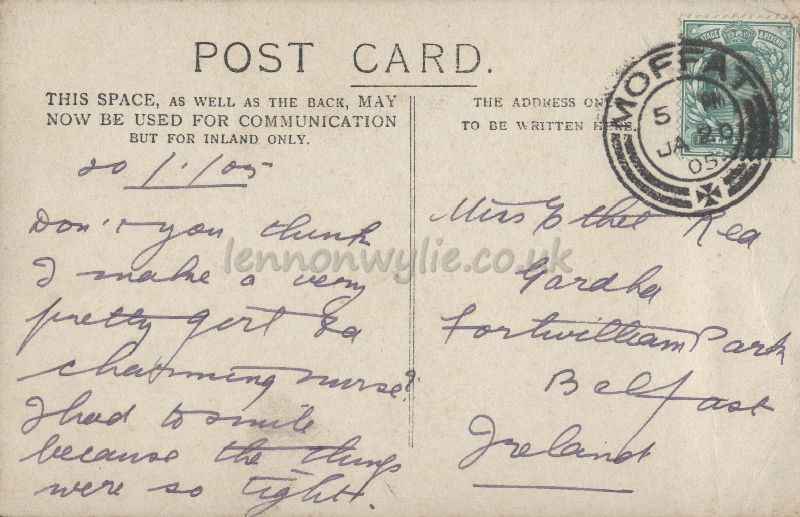 POST CARD.
THIS SPACE, AS WELL AS THE BACK, MAY
NOW BE USED FOR COMMUNICATION
BUT FOR INLAND ONLY.
THE ADDRESS ONLY
TO BE WRITTEN HERE.
MOFFAT
5 PM
JA 20
05
20/1/05
Don't you think
I make a very
pretty girl & a
charming nurse?
I had to smile
because the things
were so tight.
Miss Ethel Rea
Gardha
Fortwilliam Park
Belfast
Ireland
lennonwylie.co.uk